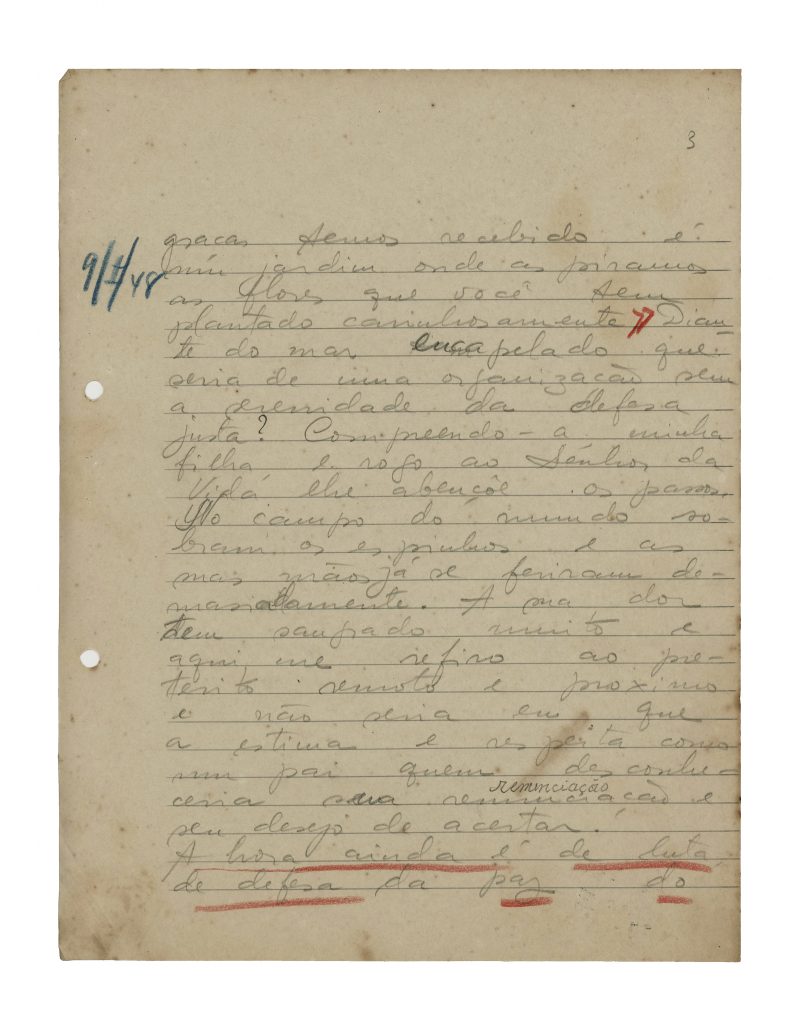 3
9/4/48
graças temos recebido é
um jardim onde aspiramos
as flores que você tem
plantado carinhosamente » Dian
te do mar encapelado que
seria de uma organização sem
a serenidade da defesa
justa? Compreendo-a minha
filha e rogo ao Senhor da
Vida lhe abençõe os passos.
No campo do mundo so-
bram os espinhos e as
mas mãos já se feriram de-
masiadamente. A sua dor
tem sangrado muito e
aqui me refiro ao pre-
terito remoto e proximo
e não seria eu que
a estima e respeita como
um pai quem desconhe-
renunciação
ceria sua renunciação e
seu desejo de acertar.
A hora ainda é de luta,
de defesa da paz do